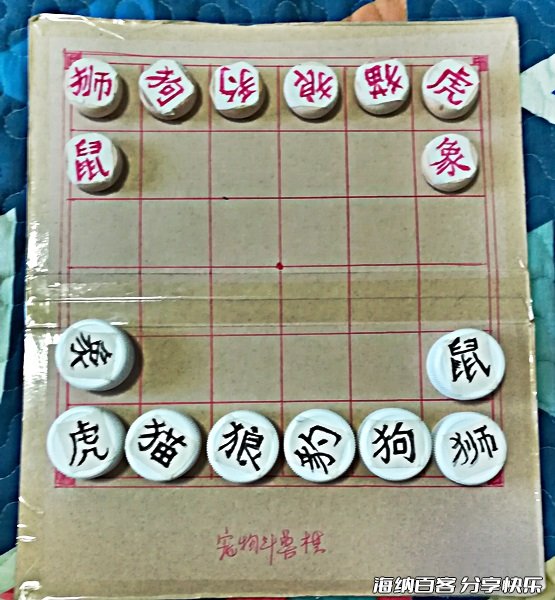 狮 狗 豹 狼 猫 虎
鼠 象
象 鼠
虎 猫 狼 豹 狗 狮
宠物斗兽棋
海纳百客 分享快乐